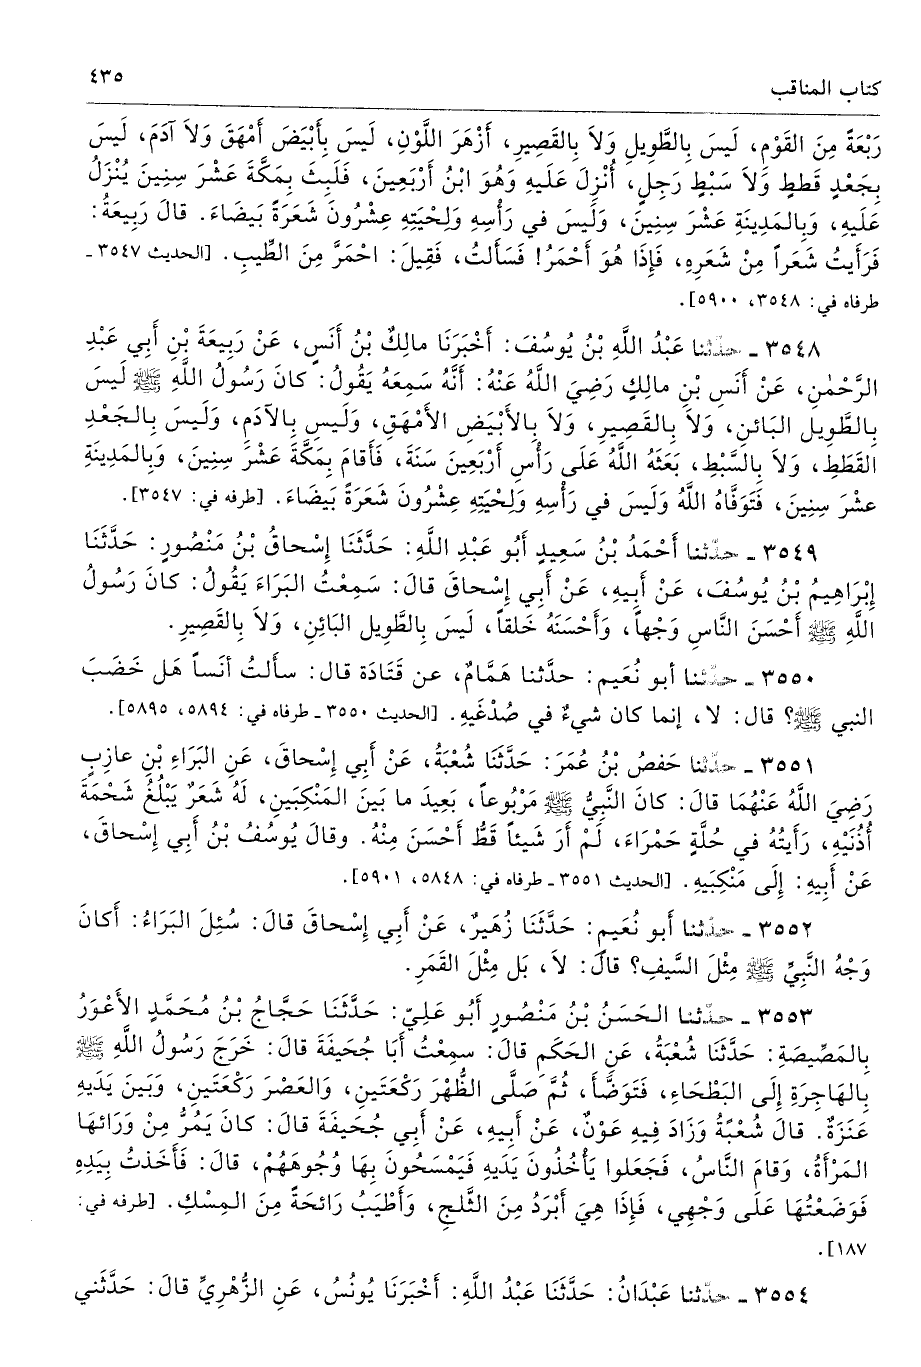 كتاب المناقب ٤٣٥
رَبْعَةً مِنَ القَوْمِ، لَيسَ بِالطَّوِيلِ وَلاَ بِالقَصِيرِ، أَزْهَرَ اللَّوْنِ، لَيسَ بِأَبْيَضَ أَمْهَقَ وَلاَ آدَمَ، لَيسَ
بِجَعْدٍ قَطَطٍ وَلاَ سَبْطٍ رَجِلٍ، أُنْزِلَ عَلَيهِ وَهُوَ ابْنُ أَرْبَعِينَ، فَلَبِثَ بِمَكَّةَ عَشْرَ سِنِينَ يُنْزَلُ
عَلَيهِ، وَبِالمَدِينَةِ عَشْرَ سِنِينَ، وَلَيسَ في رَأْسِهِ وَلِحْيَتِهِ عِشْرُونَ شَعَرَةً بَيضَاءَ. قالَ رَبِيعَةُ:
فَرَأَيتُ شَعَراً مِنْ شَعَرِهِ، فَإِذَا هُوَ أَحْمَرُ! فَسَأَلتُ، فَقِيلَ: احْمَرَّ مِنَ الطِّيبِ. [الحديث ٣٥٤٧ ـ
طرفاه في: ٣٥٤٨، ٥٩٠٠].
٣٥٤٨ ـ حدّثنا عَبْدُ اللَّهِ بْنُ يُوسُفَ: أَخْبَرَنَا مالِكٌ بْنُ أَنَسٍ، عَنْ رَبِيعَةَ بْنِ أَبِي عَبْدِ
الرَّحْمٰنِ، عَنْ أَنَسِ بْنِ مالِكٍ رَضِيَ اللَّهُ عَنْهُ: أَنَّهُ سَمِعَهُ يَقُولُ: كانَ رَسُولُ اللَّهِ ﷺ لَيسَ
بِالطَّوِيلِ البَائِنِ، وَلاَ بِالقَصِيرِ، وَلاَ بِالأَبْيَضِ الأَمْهَقِ، وَلَيسَ بِالآدَمِ، وَلَيسَ بِالجَعْدِ
القَطَطِ، وَلاَ بِالسَّبْطِ، بَعَثَهُ اللَّهُ عَلَى رَأْسِ أَرْبَعِينَ سَنَةً، فَأَقامَ بِمَكَّةَ عَشْرَ سِنِينَ، وَبِالمَدِينَةِ
عشْرَ سِنِينَ، فَتَوَفَّاهُ اللَّهُ وَلَيسَ في رَأْسِهِ وَلِحْيَتِهِ عِشْرُونَ شَعَرَةً بَيضَاءَ. [طرفه في: ٣٥٤٧].
٣٥٤٩ ـ حدّثنا أَحْمَدُ بْنُ سَعِيدٍ أَبُو عَبْدِ اللَّهِ: حَدَّثَنَا إِسْحاقُ بْنُ مَنْصُورٍ: حَدَّثَنَا
إِبْرَاهِيمُ بْنُ يُوسُفَ، عَنْ أَبِيهِ، عَنْ أَبِي إِسْحاقَ قالَ: سَمِعْتُ البَرَاءَ يَقُولُ: كانَ رَسُولُ
اللَّهِ ﷺ أَحْسَنَ النَّاسِ وَجْهاً، وَأَحْسَنَهُ خَلقاً، لَيسَ بِالطَّوِيلِ البَائِنِ، وَلاَ بِالقَصِيرِ.
٣٥٥٠ ـ حدّثنا أبو نُعَيم: حدَّثنا هَمَّامٌ، عن قَتَادَة قال: سألتُ أنَساً هَل خَضَبَ
النبي ﷺ؟ قال: لا، إنما كان شيءٌ في صُدْغَيهِ. [الحديث ٣٥٥٠ ـ طرفاه في: ٥٨٩٤، ٥٨٩٥].
٣٥٥١ ـ حدّثنا حَفصُ بْنُ عُمَرَ: حَدَّثَنَا شُعْبَةُ، عَنْ أَبِي إِسْحاقَ، عَنِ البَرَاءِ بْنِ عازِبٍ
رَضِيَ اللَّهُ عَنْهُمَا قالَ: كانَ النَّبِيُّ ﷺ مَرْبُوعاً، بَعِيدَ ما بَينَ المَنْكِبَينِ، لَهُ شَعَرٌ يَبْلُغُ شَحْمَةَ
أُذُنَيْهِ، رَأَيتُهُ في حُلَّةٍ حَمْرَاءَ، لَمْ أَرَ شَيئاً قَطُّ أَحْسَنَ مِنْهُ. وقالَ يُوسُفُ بْنُ أَبِي إِسْحاقَ،
عَنْ أَبِيهِ: إِلَى مَنْكِبَيهِ. [الحديث ٣٥٥١ ـ طرفاه في: ٥٨٤٨، ٥٩٠١].
٣٥٥٢ ـ حدّثنا أَبو نُعَيمٍ: حَدَّثَنَا زُهَيرٌ، عَنْ أَبِي إِسْحاقَ قالَ: سُئِلَ البَرَاءُ: أَكانَ
وَجْهُ النَّبِيِّ ﷺ مِثْلَ السَّيفِ؟ قالَ: لاَ، بَل مِثْلَ القَمَرِ.
٣٥٥٣ ـ حدّثنا الحَسَنُ بْنُ مَنْصُورٍ أَبُو عَلِيّ: حَدَّثَنَا حَجَّاجُ بْنُ مُحَمَّدٍ الأَعْوَرُ
بِالمَصِّيصَةِ: حَدَّثَنَا شُعْبَةُ، عَنِ الحَكَمِ قالَ: سمِعْتُ أَبَا جُحَيفَةَ قالَ: خَرَجَ رَسُولُ اللَّهِ ﷺ
بِالهَاجِرَةِ إِلَى البَطْحَاءِ، فَتَوَضَّأَ، ثُمَّ صَلَّى الظُّهْرَ رَكْعَتَينِ، وَالعَصْرَ رَكْعَتَينِ، وَبَينَ يَدَيهِ
عَنَزَةٌ. قالَ شُعْبَةُ وَزَادَ فِيهِ عَوْنٌ، عَنْ أَبِيهِ، عَنْ أَبِي جُحَيفَةَ قالَ: كانَ يَمُرُّ مِنْ وَرَائها
المَرْأَةُ، وَقامَ النَّاسُ، فَجَعَلوا يَأْخُذُونَ يَدَيهِ فَيَمْسَحُونَ بِهَا وُجُوهَهُمْ، قالَ: فَأَخَذتُ بِيَدِهِ
فَوَضَعْتُهَا عَلَى وَجْهِي، فَإِذَا هِيَ أَبْرَدُ مِنَ الثَّلجِ، وَأَطْيَبُ رَائحَةً مِنَ المِسْكِ. [طرفه في:
١٨٧].
٣٥٥٤ ـ حدّثنا عَبْدَانُ: حَدَّثَنَا عَبْدُ اللَّهِ: أَخْبَرَنَا يُونُسُ، عَنِ الزُّهْرِيِّ قالَ: حَدَّثَني